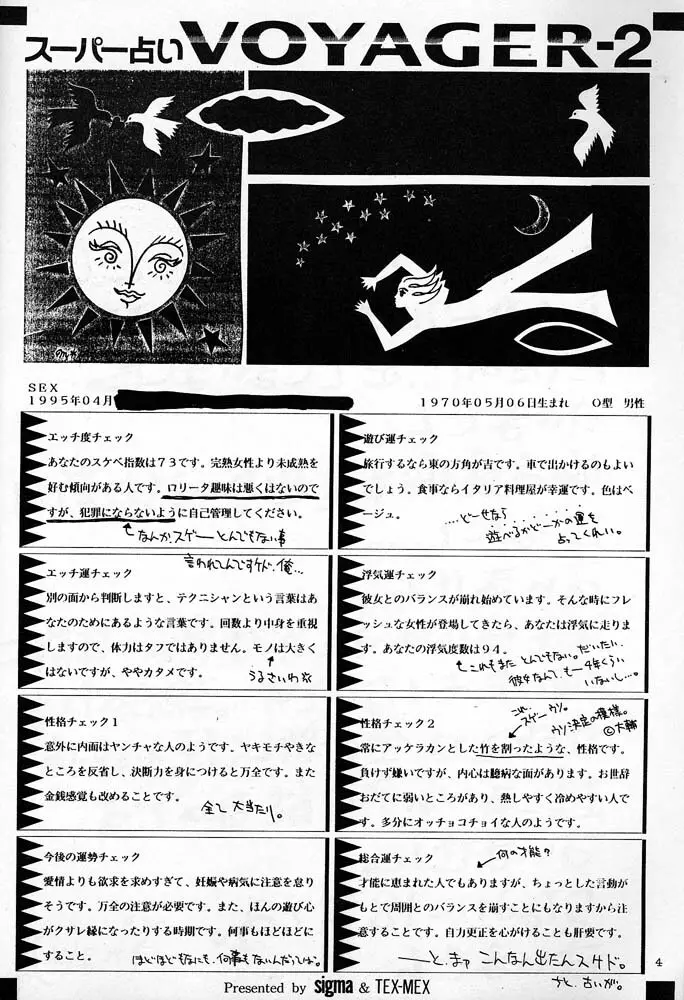 スーパー占い VOYAGER-2
SEX
1995年04月
1970年05月06日生まれ　O型　男性
エッチ度チェック
あなたのスケベ指数は73です。完熟女性より未成熟を
好む傾向がある人です。ロリータ趣味は悪くはないので
すが、犯罪にならないように自己管理してください。
なんか、スゲー とんでもない事
言われてんですケド、俺…
遊び運チェック
旅行するなら東の方角が吉です。車で出かけるのもよい
でしょう。食事ならイタリア料理屋が幸運です。色はベ
ージュ。
…どーせなら
遊べるかどーかの運を
占ってくれい。
エッチ運チェック
別の面から判断しますと、テクニシャンという言葉はあ
なたのためにあるような言葉です。回数より中身を重視
しますので、体力はタフではありません。モノは大きく
はないですが、ややカタメです。
うるさいわ
浮気運チェック
彼女とのバランスが崩れ始めています。そんな時にフレ
ッシュな女性が登場してきたら、あなたは浮気に走りま
す。あなたの浮気度数は94。
これもまた とんでもない。だいたい、
彼女なんて、もー4年くらい
いないし…。
性格チェック1
意外に内面はヤンチャな人のようです。ヤキモチやきな
ところを反省し、決断力を身につけると万全です。また
金銭感覚も改めることです。
全て 大当たり。
これ、
スゲー ウソ。
ウソ決定の模様。
性格チェック2
常にアッケラカンとした竹を割ったような、性格です。
負けず嫌いですが、内心は臆病な面があります。お世辞
おだてに弱いところがあり、熱しやすく冷めやすい人で
す。多分にオッチョコチョイな人のようです。
今後の運勢チェック
愛情よりも欲求を求めすぎて、妊娠や病気に注意を怠り
そうです。万全の注意が必要です。また、ほんの遊び心
がクサレ縁になったりする時期です。何事もほどほどに
すること。
ほどほどもなにも、何事もないんだってば。
総合運チェック
何の才能?
才能に恵まれた人でもありますが、ちょっとした言動が
もとで周囲とのバランスを崩すことにもなりますから注
意することです。自力更正を心がけることも肝要です。
——と、まァ こんなん出たんスケド。
ちと、古いが。
4
Presented by sigma & TEX-MEX